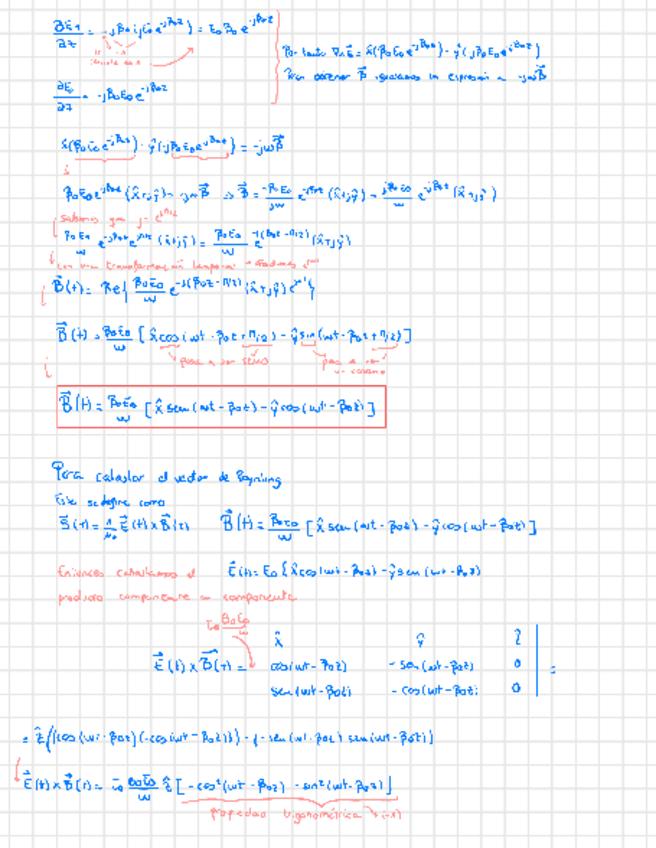 ∂E₁/∂z = -jβ₀(jE₀e^{-jβ₀z}) = E₀β₀e^{-jβ₀z}
Por tanto ∇×E = x̂(β₀E₀e^{-jβ₀z}) - ŷ(-jβ₀E₀e^{-jβ₀z})
Para obtener B igualamos la expresión a -jωB⃗
∂E/∂z = -jβ₀E₀e^{-jβ₀z}
x̂(β₀E₀e^{-jβ₀z}) - ŷ(-jβ₀E₀e^{-jβ₀z}) = -jωB⃗
β₀E₀e^{-jβ₀z}(x̂+jŷ) = -jωB⃗ ⇒ B⃗ = -β₀E₀/jω e^{-jβ₀z}(x̂+jŷ) = jβ₀E₀/ω e^{-jβ₀z}(x̂+jŷ)
sabemos que j = e^{jπ/2}
β₀E₀/ω e^{-jβ₀z} e^{jπ/2}(x̂+jŷ) = β₀E₀/ω e^{-j(β₀z-π/2)}(x̂+jŷ)
con una transformación temporal
B⃗(t) = Re{β₀E₀/ω e^{-j(β₀z-π/2)}(x̂+jŷ)e^{jωt}}
B⃗(t) = β₀E₀/ω [x̂cos(ωt-β₀z+π/2) - ŷsin(ωt-β₀z+π/2)]
pasa a ser seno
pasa a ser un coseno
B⃗(t) = β₀E₀/ω [x̂ sen(ωt-β₀z) - ŷcos(ωt-β₀z)]
Para calcular el vector de Poynting
Este se define como
S⃗(t) = 1/μ₀ E⃗(t)×B⃗(t) B⃗(t) = β₀E₀/ω [x̂ sen(ωt-β₀z) - ŷcos(ωt-β₀z)]
Entonces calculamos el E⃗(t) = E₀{x̂cos(ωt-β₀z) - ŷsen(ωt-β₀z)
producto componente a componente
E₀ β₀E₀/ω
x̂ ŷ ẑ
E⃗(t)×B⃗(t) = cos(ωt-β₀z) -sen(ωt-β₀z) 0 =
sen(ωt-β₀z) -cos(ωt-β₀z) 0
= ẑ[(cos(ωt-β₀z)(-cos(ωt-β₀z))) - (-sen(ωt-β₀z) sen(ωt-β₀z)]
E⃗(t)×B⃗(t) = E₀ β₀E₀/ω ẑ [-cos²(ωt-β₀z) - sin²(ωt-β₀z)]
propiedad trigonométrica